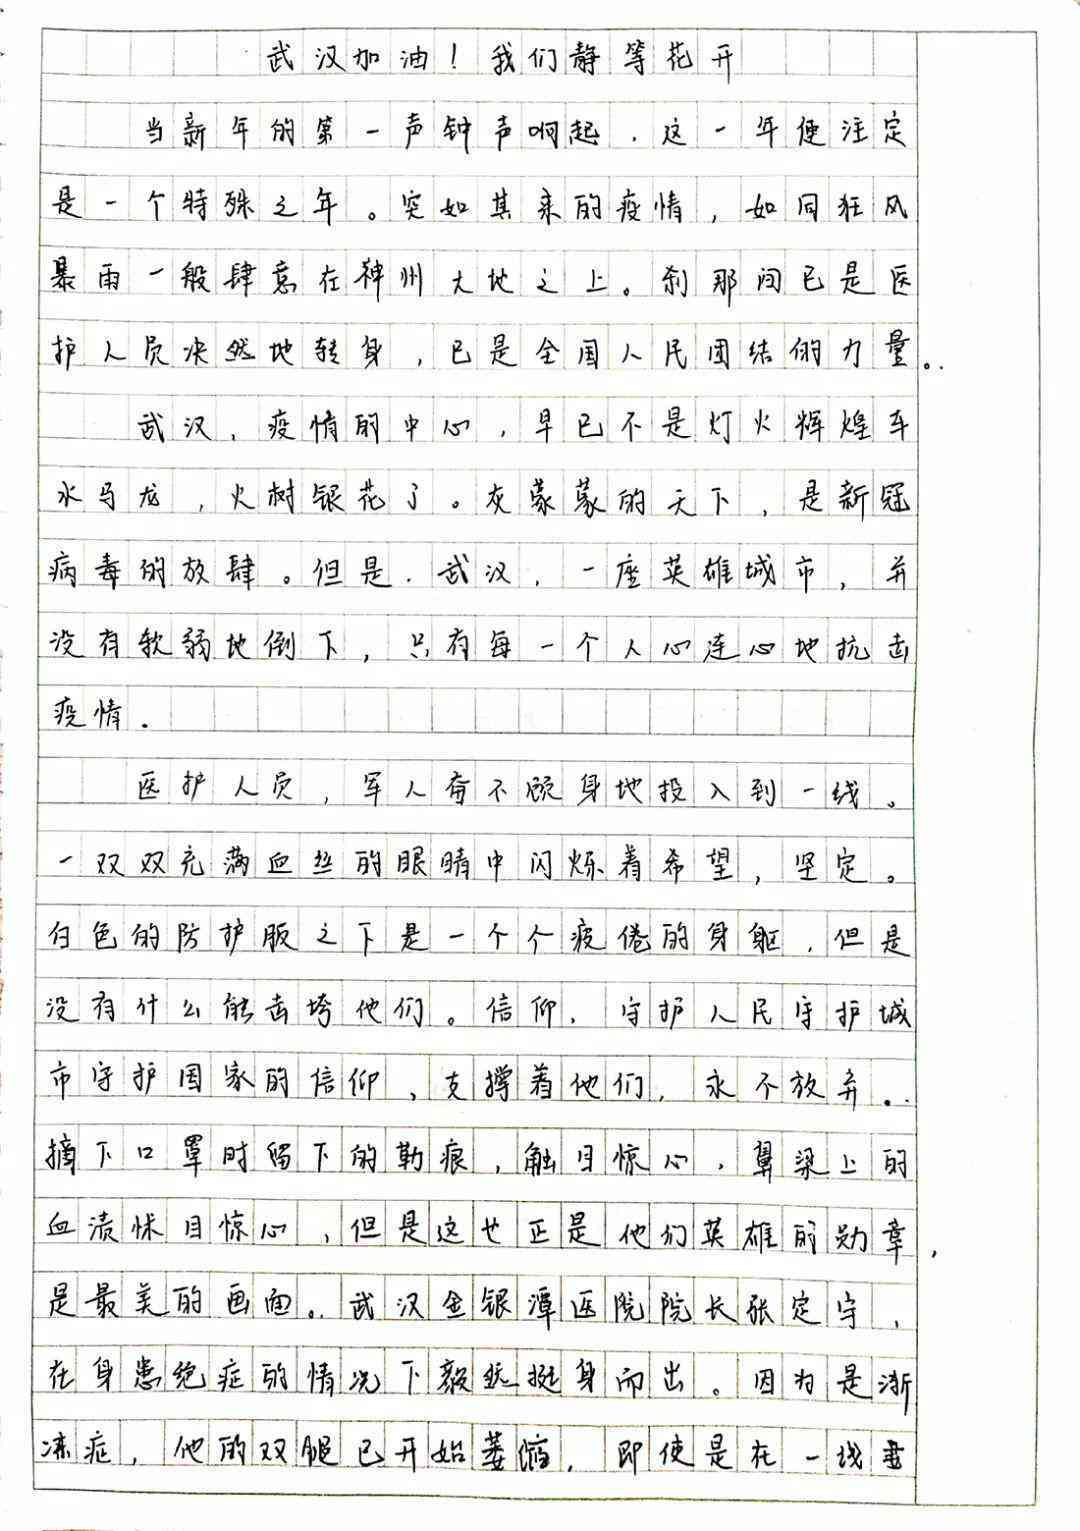 武汉加油！我们静等花开
当新年的第一声钟声响起，这一年便注定
是一个特殊之年。突如其来的疫情，如同狂风
暴雨一般肆意在神州大地之上。刹那间已是医
护人员决然地转身，已是全国人民团结的力量。
武汉，疫情的中心，早已不是灯火辉煌车
水马龙，火树银花了。灰蒙蒙的天下，是新冠
病毒的放肆。但是，武汉，一座英雄城市，并
没有软弱地倒下，只有每一个人心连心地抗击
疫情．
医护人员，军人奋不顾身地投入到一线。
一双双充满血丝的眼睛中闪烁着希望，坚定。
白色的防护服之下是一个个疲倦的身躯，但是
没有什么能击垮他们。信仰，守护人民守护城
市守护国家的信仰，支撑着他们，永不放弃。
摘下口罩时留下的勒痕，触目惊心，鼻梁上的
血渍怵目惊心，但是这也正是他们英雄的勋章，
是最美的画面。武汉金银潭医院院长张定宇，
在身患绝症的情况下毅然挺身而出。因为是渐
冻症，他的双腿已开始萎缩，即使是在一线